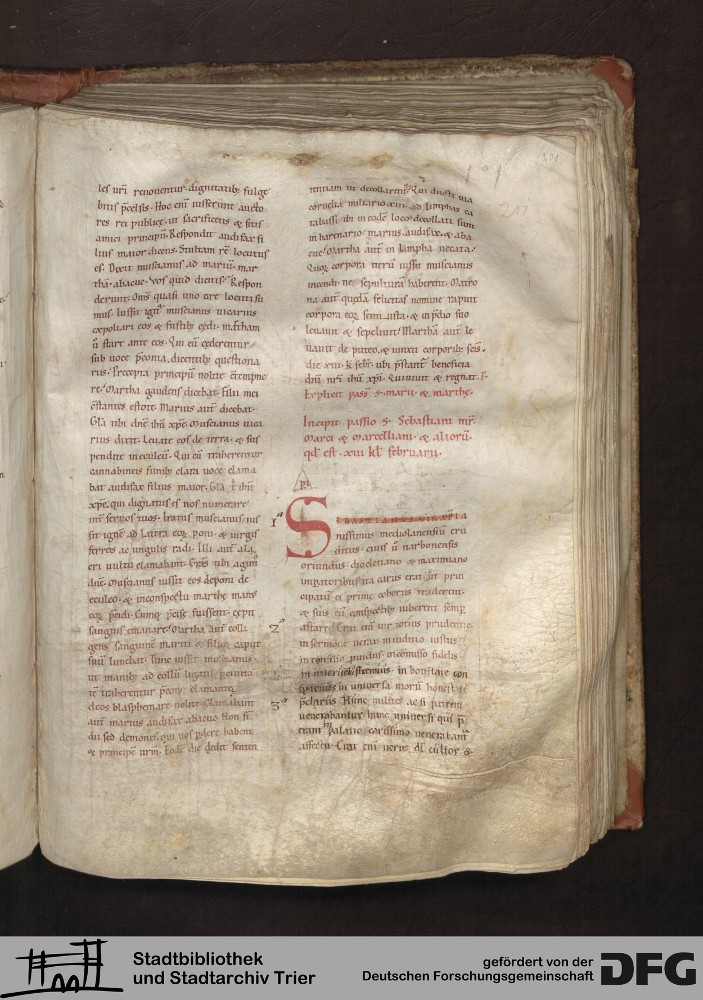 les vr̄i renouentur. dignitatib; fulge
bitis p̄celsis. Hoc eni iusserunt aucto
res rei publicę. ut sacrificetis & sitis
amici principū. Respondit audifax fi
lius maior dicens. Stultam rē locutus
es. Dixit muscianus ad mariū. mar
thā. abacuc. Vos quid dicitis. Respon
derunt. Oms̄ quasi uno ore locuti su
mus. Iussit igit muscianus uicarius
expoliari eos & fustib; cędi. martham
ū stare ante eos. Qui cū cederentur
sub uoce p̄conia. dicentib; questiona
riis. Precepta principū nolite cōtempne
re. Martha gaudens dicebat. Filii mei
cōstantes estote. Marius aut̄ dicebat.
Gl̄a tibi dn̄e ihū xp̄e. Muscianus uica
rius dixit. Leuate eos de terra. & sus
pendite in eculeū. Qui cū traherentur
cannabineis funib; clara uoce clama
bat audifax filius maior. Gl̄a t̄ ihū
xp̄e. qui dignatus es nos numerare
int̄ seruos tuos. Iratus muscianus ius
sit ignē ad latera eoꝝ poni. & uirgis
ferreis ac ungulis radi. Illi aut̄ ala
cri uultu clamabant. Gr̄as tibi agim̄
dn̄e. Muscianus iussit eos deponi de
eculeo. & in conspectu marthę manꝰ
eoꝝ p̄cidi. Cumq; p̄cise fuissent. cepit
sanguis emanare. Martha aut̄ colli
gens sanguinē mariti & filioꝝ caput
suū linebat. Tunc iussit muscianus.
ut manib; ad collū ligatis p̄ciuita
tē traherentur p̄cone clamante
deos blasphemare nolite. Clamabant
aut̄ marius audifax abacuc. Non st̄
dii sed demones. qui uos p̄dere habent
& principē urm̄. Eodē die dedit senten
101
201
tentiam ut decollarent᷑. Qui ducti uia
cornelia miliario xiii. ad limphas ca
tabassi. ibi in eodē loco decollati sunt
in harenario marius. audifax. & aba
cuc. Martha aut̄ in lampha necata.
Quoꝝ corpora iterū iussit muscianus
incendi ne sepulturā haberent. Matro
na aut̄ quędā felicitas nomine rapuit
corpora eoꝝ semiusta. & in p̄dio suo
leuauit & sepeliuit. Marthā aut̄ le
uauit de puteo. & iunxit corporib; scīs.
die xiii. k̄ febr̄. ubi p̄stant᷑ beneficia
dn̄i nr̄i ihū xp̄i. Qui uiuit & regnat.
Explicit pass̄ S. marii & marthę.
Incipit passio S. Sebastiani mr̄
Marci & Marcelliani. & alioꝝ.
qd̄ est. xiii kl̄ februarii.
1ª
SEBASTIANUS VIR XP̄IA
nissimus mediolanensiū eru
ditus. ciuis ū narbonensis
oriundus. diocletiano & maximiano
imp̄atoribus ita carus erat. ut prin
cipatū ei prime cohortis traderent.
& suis eū conspectib; iuberent semp̄
astare. Erat eni uir totius prudentię
in sermone uerax. in iudicio iustus.
in consilio prouidus. in cōmisso fidelis
in interuentu strenuus. in bonitate con
spicuus. in uniuersa morū honestate
p̄clarus. Hunc milites ac si patrem
uenerabantur hunc uniuersi qui p̄
erant palatio. carissimo uenerabant᷑
affectu. Erat eni uerus dī cultor &
2ª
3ª
Stadtbibliothek
und Stadtarchiv Trier
gefördert von der
Deutschen Forschungsgemeinschaft
DFG